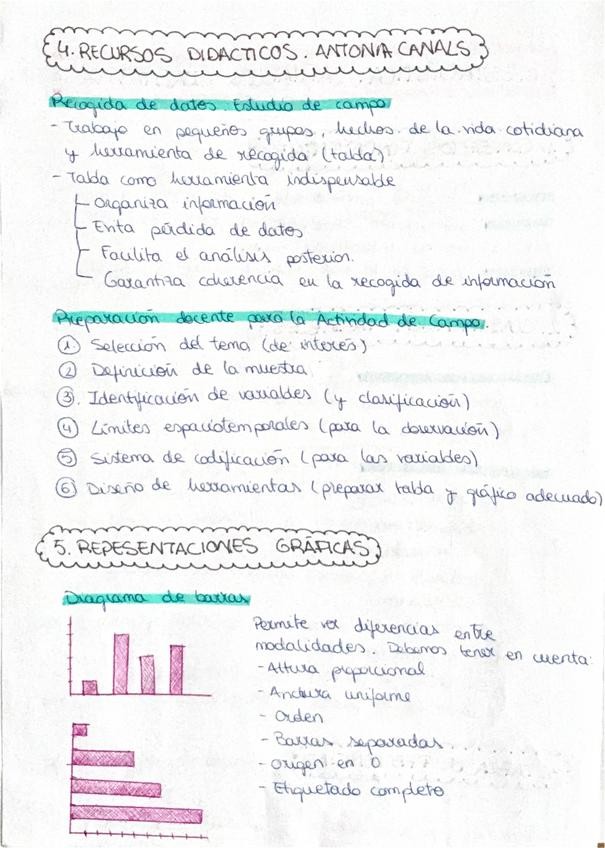 4. RECURSOS DIDACTICOS. ANTONIA CANALS
Recogida de datos. Estudio de campo
- Trabajo en pequeños grupos, hechos de la vida cotidiana
y herramienta de recogida (tabla)
- Tabla como herramienta indispensable
Organiza información
Evita pérdida de datos
Facilita el análisis posterior.
Garantiza coherencia en la recogida de información
Preparación docente para la Actividad de Campo.
1 Selección del tema (de interés)
2 Definición de la muestra
3. Identificación de variables (y clasificación)
4 Límites espaciotemporales (para la observación)
5 Sistema de codificación (para las variables)
6 Diseño de herramientas (preparar tabla y gráfico adecuado)
5. REPESENTACIONES GRÁFICAS
Diagrama de barras
Permite ver diferencias entre
modalidades. Debemos tener en cuenta:
- Altura proporcional
- Anchura uniforme
- Orden
- Barras separadas
- Origen en 0
- Etiquetado completo